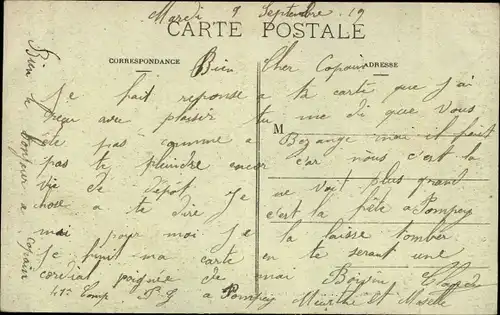 Mardi 9 Septembre 19
CARTE POSTALE
CORRESPONDANCE
ADRESSE
M
Bien Cher Copain
Je fait reponse a ta carte que j'ai
reçu avec plaisir tu me di que vous
été pas comme a Bezange moi il faut
pas te plaindre encor car nous c'est la
vie de dépot. Je ne voit plus grand
chose a te dire c'est la fête a Pompey
moi pour moi je la laisse tomber
Je finit ma carte en te serant une
cordial poignée de mai Boivin
a Pompey Meurthe et Moselle
Bien le bonjour a copain